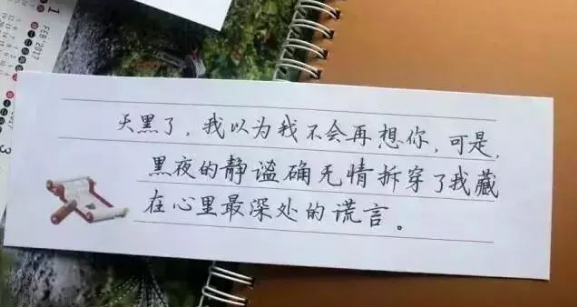 天黑了,我以为我不会再想你,可是,
黑夜的静谧确无情拆穿了我藏
在心里最深处的谎言。
1
FEB 2017
3